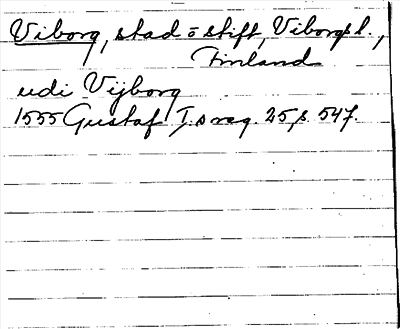 Viborg, stad o stift, Viborgs l.,
Finland
udi Vijborg
1555 Gustaf I.s reg. 25 s. 547.